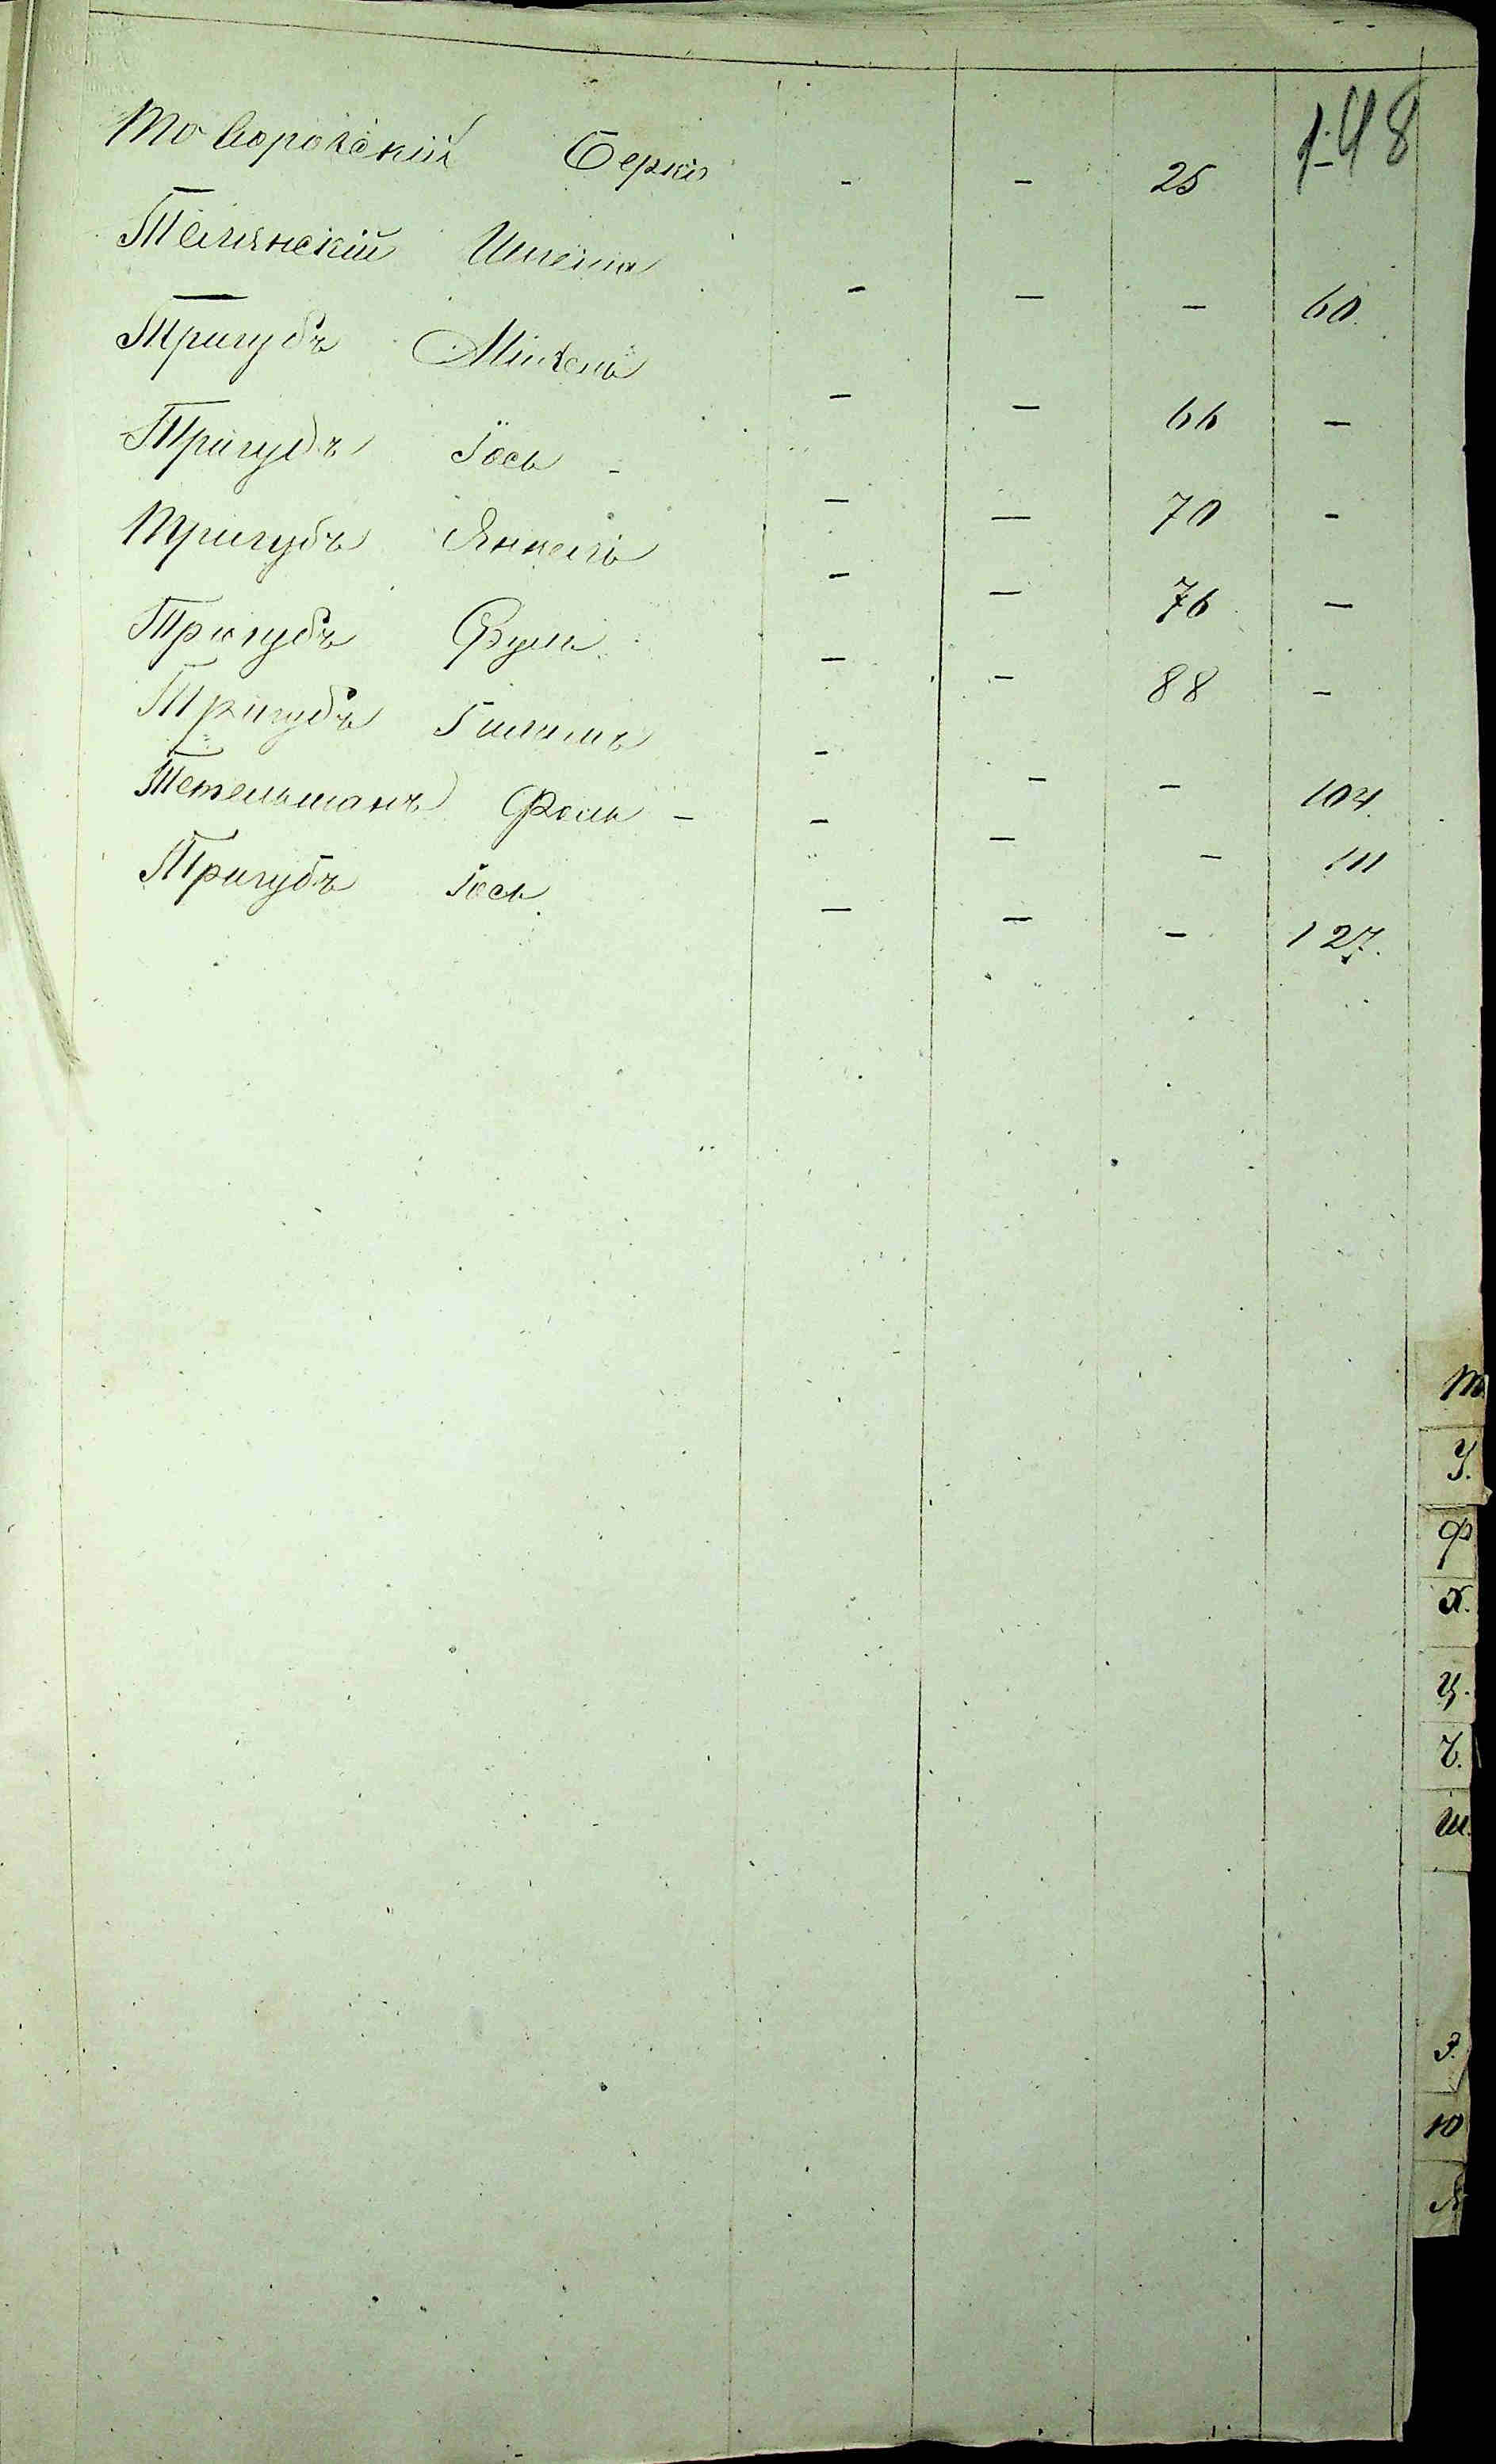 148
Товоровскій Берко - - 25
Телянскій Шлема - - - 60.
Тригубъ Михель - - 66 -
Тригубъ Іось - - - 70 -
Тригубъ Янкель - - 76 -
Тригубъ Фуль - - 88 -
Тригубъ - - - 104.
Тетельманъ - - - - 111
Тригубъ Іось - - - 127.
Т
У.
Ф
Х.
Ц.
Ч.
Ш.
Э.
Ю
Я